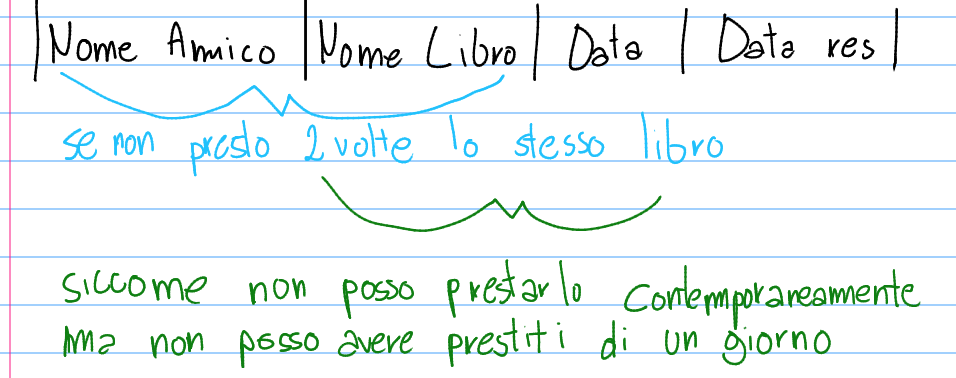 |Nome Amico |Nome Libro| Data | Data res|
se non presto 2 volte lo stesso libro
siccome non posso prestarlo contemporaneamente
ma non posso avere prestiti di un giorno